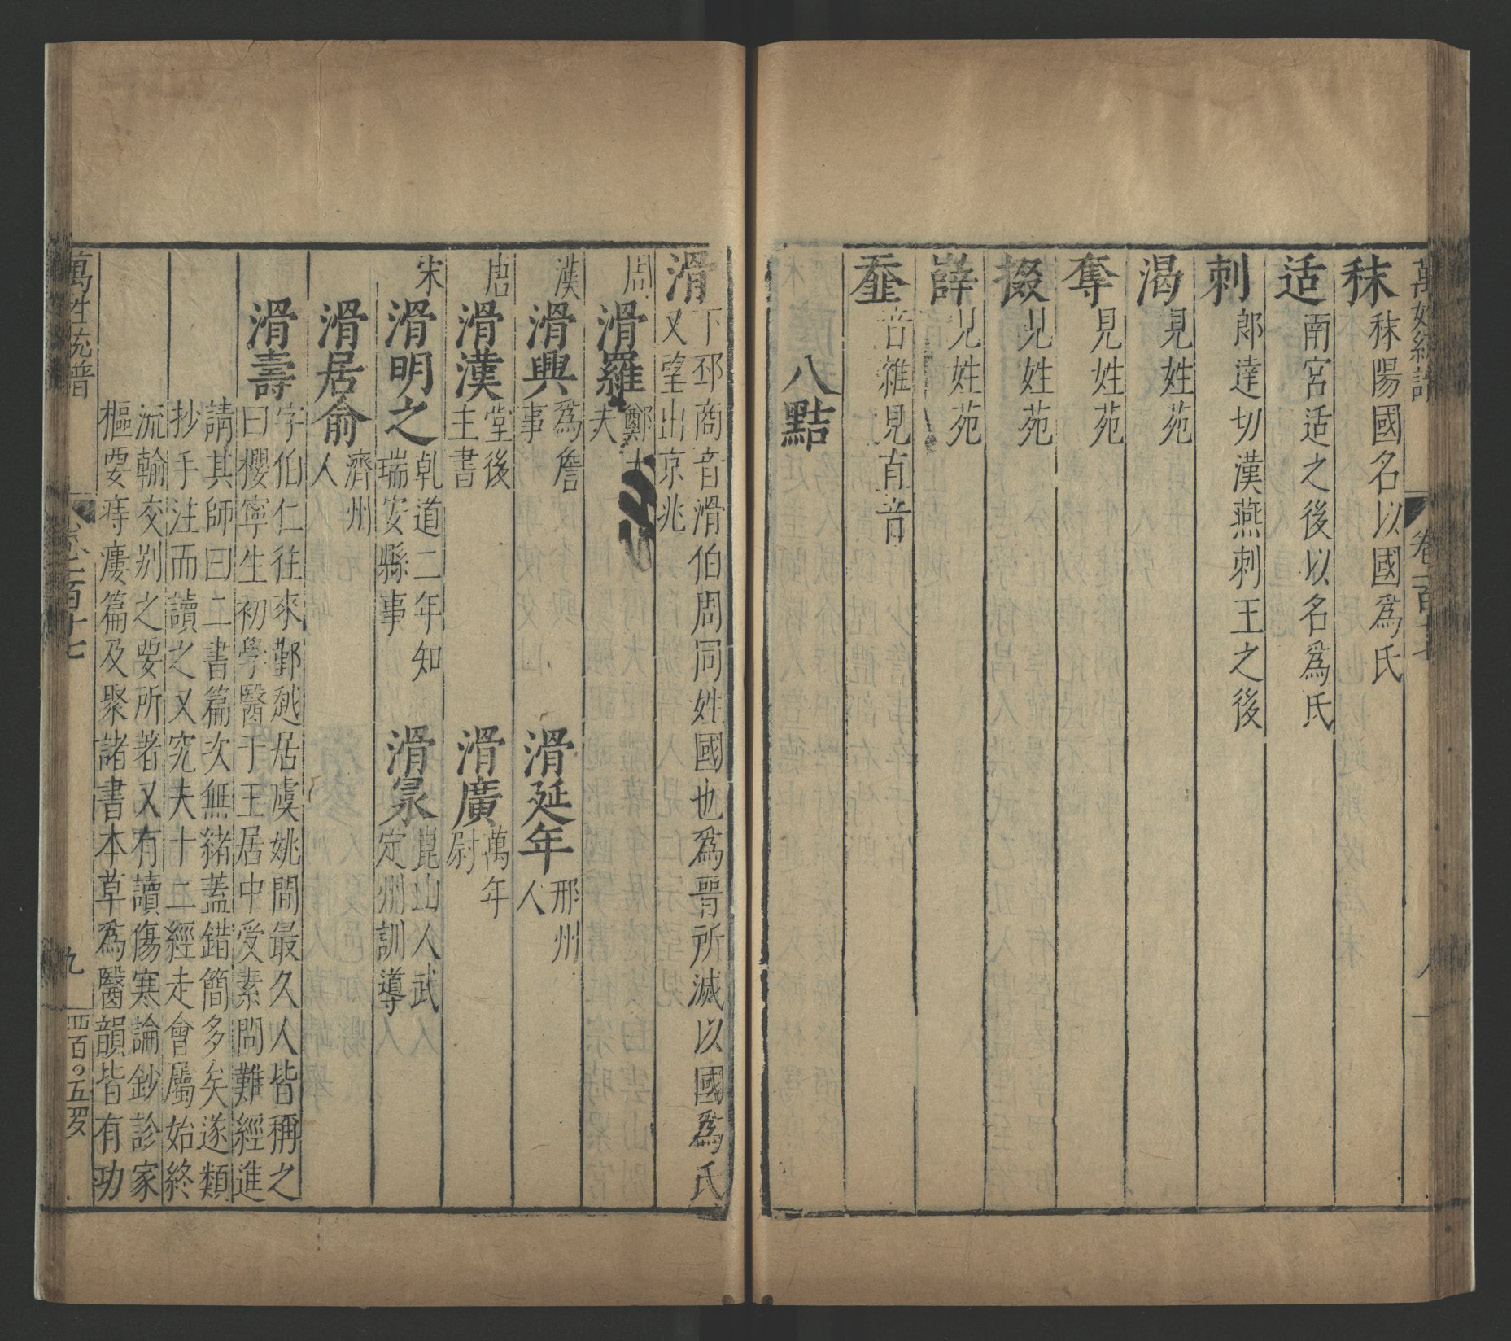 萬姓統譜 卷一百十七 八
秣 秣陽國名以國爲氏
适 南宮适之後以名爲氏
刺 郎達切漢燕刺王之後
渴 見姓苑
奪 見姓苑
掇 見姓苑
嶭 見姓苑
音雜見直音
八黠
滑 下邳商音滑伯周同姓國也爲晋所滅以國爲氏
又望出京兆
周 滑羅 鄭大
夫
漢 滑興 爲詹
事
滑延年 邢州
人
唐 滑漢 堂後
主書
滑廣 萬年
尉
宋 滑明之 乹道二年知
瑞安縣事
滑泉 崑山人武
定州訓導
滑居俞 濟州
人
滑壽 字伯仁往來鄞越居虞姚間最久人皆稱之
曰攖寧生初學醫于王居中受素問難經進
請其師曰二書篇次無豬蓋錯簡多矣遂類
抄手注而讀之又究夫十二經走會屬始終
流輸交別之要所著又有讀傷寒論鈔診家
樞要痔瘻篇及聚諸書本草爲醫韻皆有功
萬姓統譜 卷一百十七 九 四百〇五